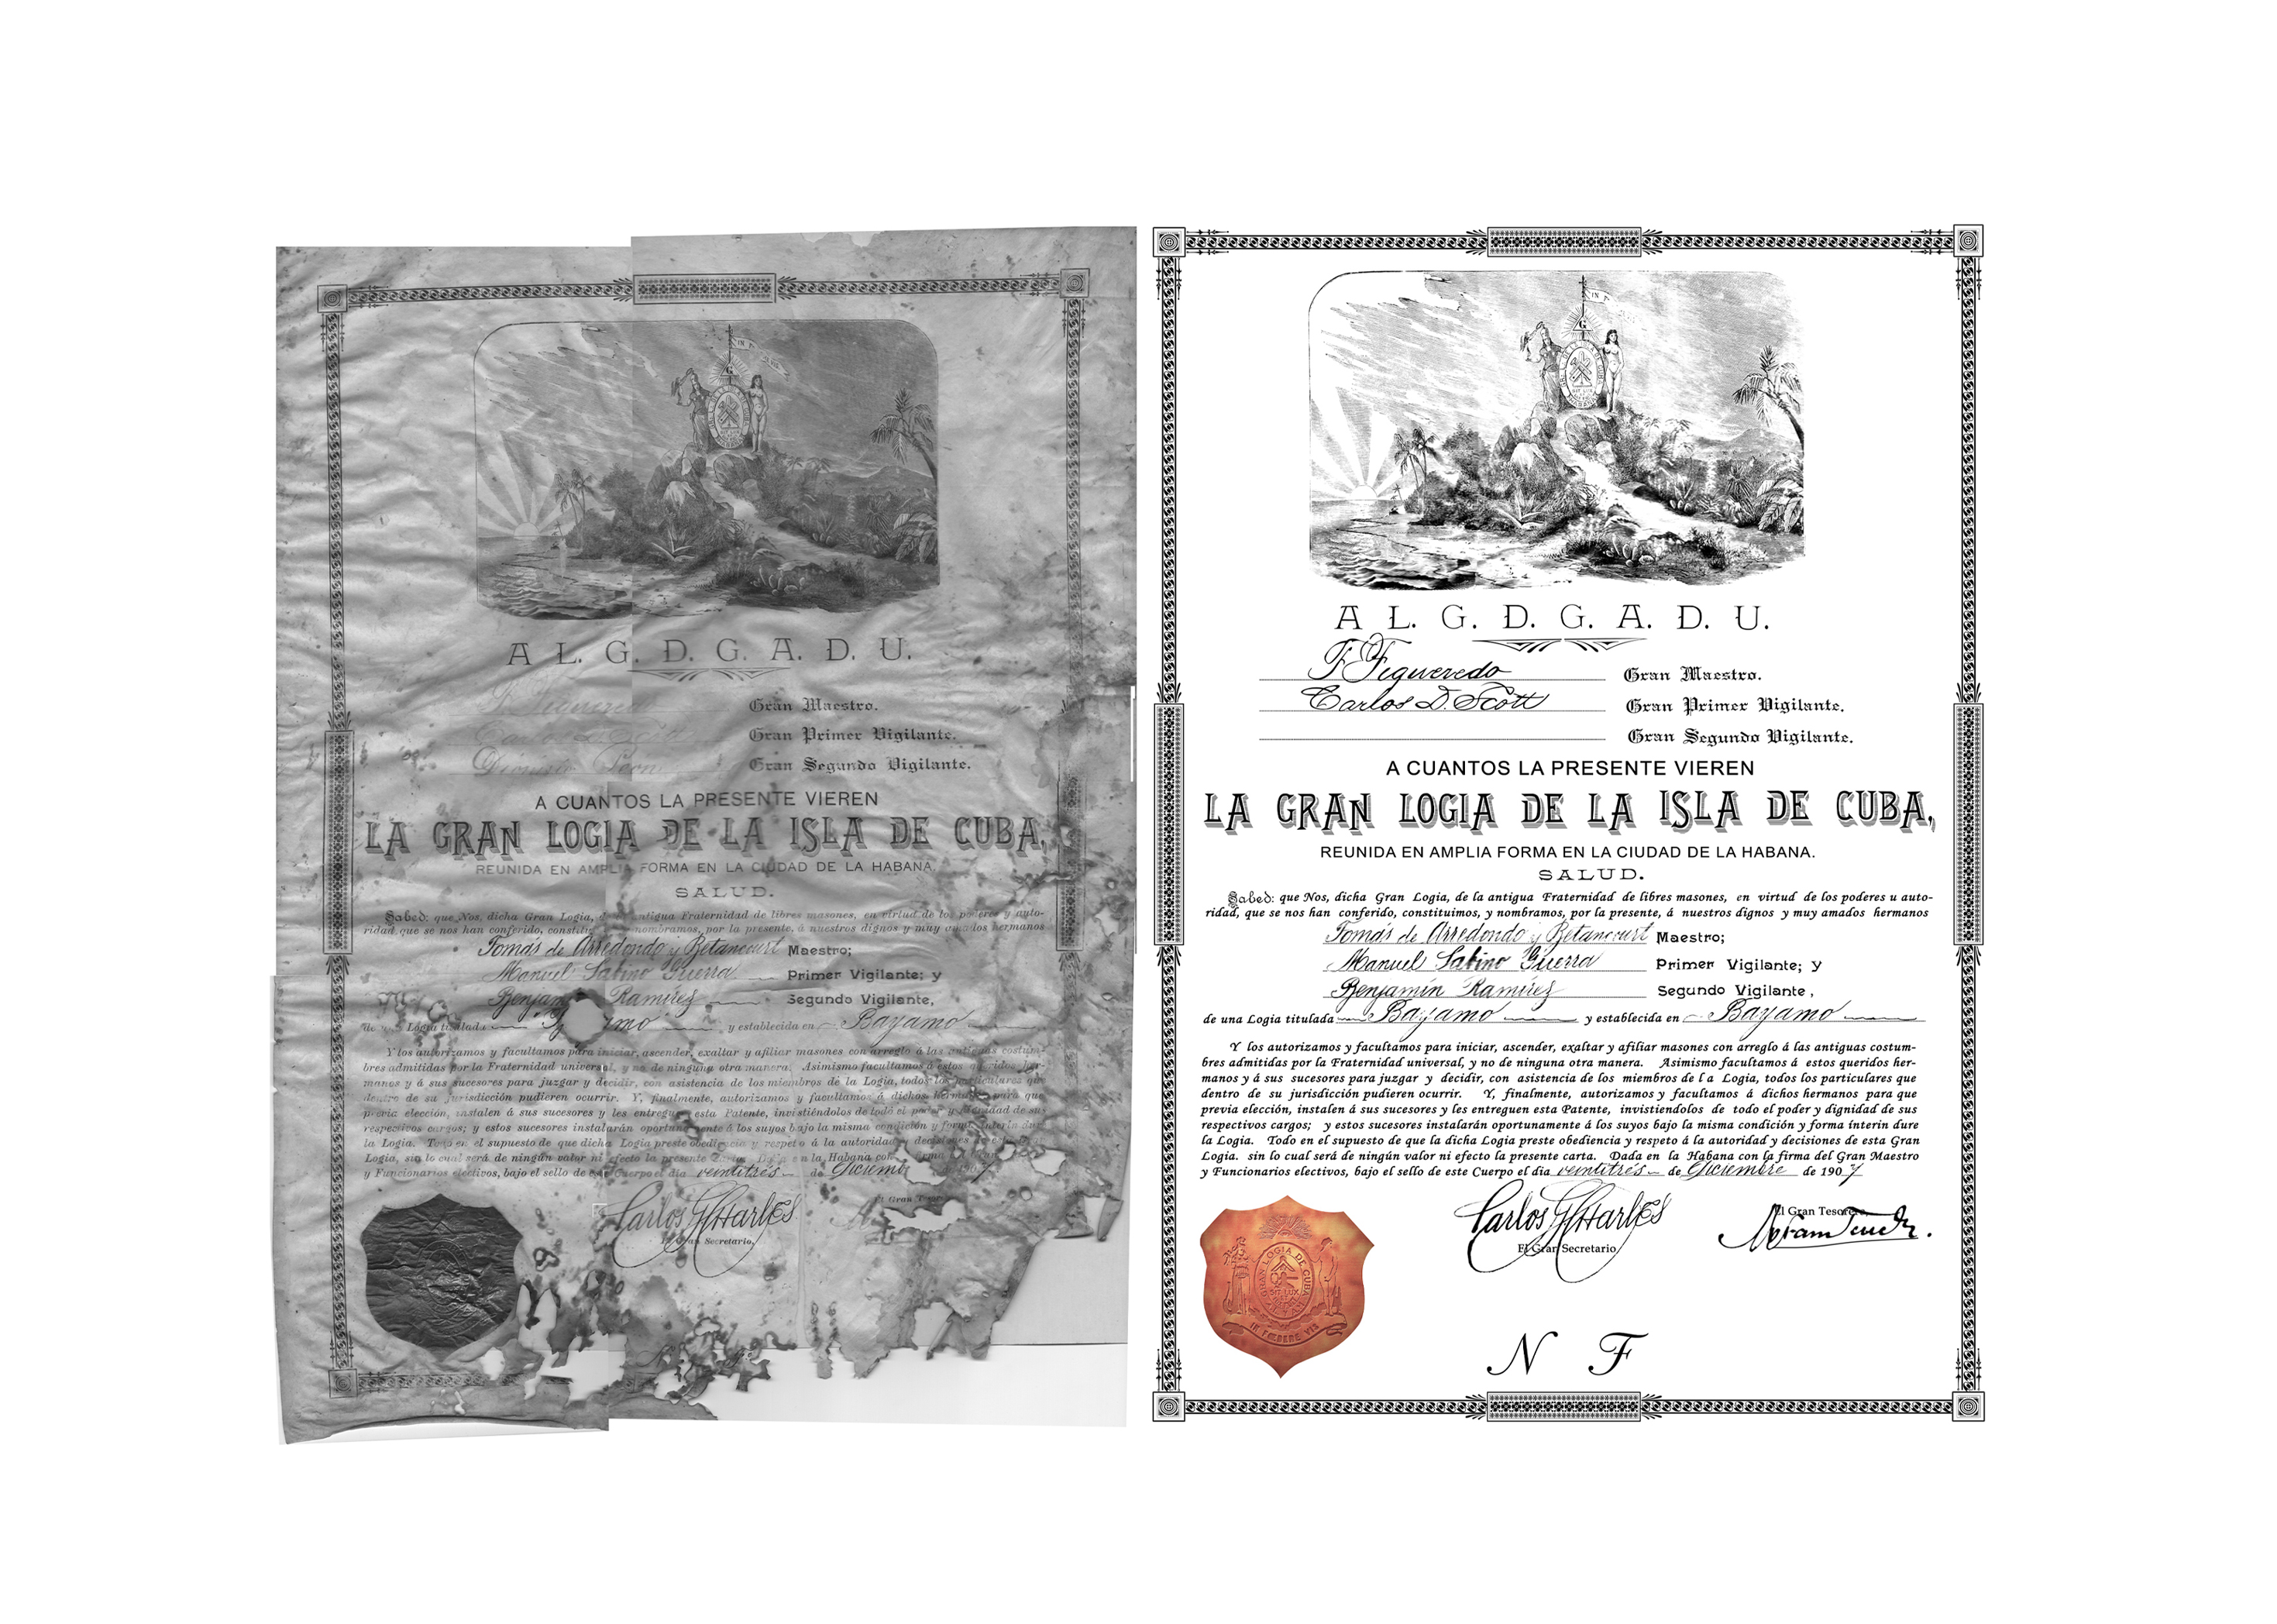 A L. G. D. G. A. D. U.
F Figueredo Gran Maestro.
Gran Primer Vigilante.
Gran Segundo Vigilante.
A CUANTOS LA PRESENTE VIEREN
LA GRAN LOGIA DE LA ISLA DE CUBA,
REUNIDA EN AMPLIA FORMA EN LA CIUDAD DE LA HABANA.
SALUD.
Sabed: que Nos, dicha Gran Logia, antigua Fraternidad de libres masones, en virtud de los poderes y auto-
ridad, que se nos han conferido, nombramos, por la presente, á nuestros dignos y muy amados hermanos
Tomás de Arredondo y Betancourt Maestro;
Manuel Sabino Guerra Primer Vigilante; y
Ramírez Segundo Vigilante,
Logia titulada y establecida en Bayamo
Y los autorizamos y facultamos para iniciar, ascender, exaltar y afiliar masones con arreglo á las antiguas costum-
bres admitidas por la Fraternidad universal, y no de ninguna otra manera. Asimismo facultamos á estos queridos her-
manos y á sus sucesores para juzgar y decidir, con asistencia de los miembros de la Logia, todos los particulares que
dentro de su jurisdicción pudieren ocurrir. Y, finalmente, autorizamos y facultamos á dichos hermanos para que
previa elección, instalen á sus sucesores y les entreguen esta Patente, invistiéndolos de todo el poder y dignidad de sus
respectivos cargos; y estos sucesores instalarán oportunamente á los suyos bajo la misma condición y forma ínterin dure
la Logia. Todo en el supuesto de que dicha Logia preste obediencia y respeto á la autoridad y decisiones
Logia, sin lo cual será de ningún valor ni efecto la presente la Habana con
y Funcionarios electivos, bajo el sello de este Cuerpo el día veintitrés de
Carlos G Charles
El Gran Secretario,
El Gran
IN
G
A L. G. D. G. A. D. U.
F Figueredo Gran Maestro.
Carlos D. Scott Gran Primer Vigilante.
Gran Segundo Vigilante.
A CUANTOS LA PRESENTE VIEREN
LA GRAN LOGIA DE LA ISLA DE CUBA,
REUNIDA EN AMPLIA FORMA EN LA CIUDAD DE LA HABANA.
SALUD.
Sabed: que Nos, dicha Gran Logia, de la antigua Fraternidad de libres masones, en virtud de los poderes u auto-
ridad, que se nos han conferido, constituimos, y nombramos, por la presente, á nuestros dignos y muy amados hermanos
Tomás de Arredondo y Betancourt Maestro;
Manuel Sabino Guerra Primer Vigilante; y
Benjamín Ramírez Segundo Vigilante,
de una Logia titulada Bayamo y establecida en Bayamo
Y los autorizamos y facultamos para iniciar, ascender, exaltar y afiliar masones con arreglo á las antiguas costum-
bres admitidas por la Fraternidad universal, y no de ninguna otra manera. Asimismo facultamos á estos queridos her-
manos y á sus sucesores para juzgar y decidir, con asistencia de los miembros de la Logia, todos los particulares que
dentro de su jurisdicción pudieren ocurrir. Y, finalmente, autorizamos y facultamos á dichos hermanos para que
previa elección, instalen á sus sucesores y les entreguen esta Patente, invistiendolos de todo el poder y dignidad de sus
respectivos cargos; y estos sucesores instalarán oportunamente á los suyos bajo la misma condición y forma ínterin dure
la Logia. Todo en el supuesto de que la dicha Logia preste obediencia y respeto á la autoridad y decisiones de esta Gran
Logia. sin lo cual será de ningún valor ni efecto la presente carta. Dada en la Habana con la firma del Gran Maestro
y Funcionarios electivos, bajo el sello de este Cuerpo el día veintitrés de Diciembre de 1907
Carlos G Charles
El Gran Secretario
El Gran Tesorero,
GRAN LOGIA DE CUBA
SIT LUX
IN FŒDERE VIS
N F